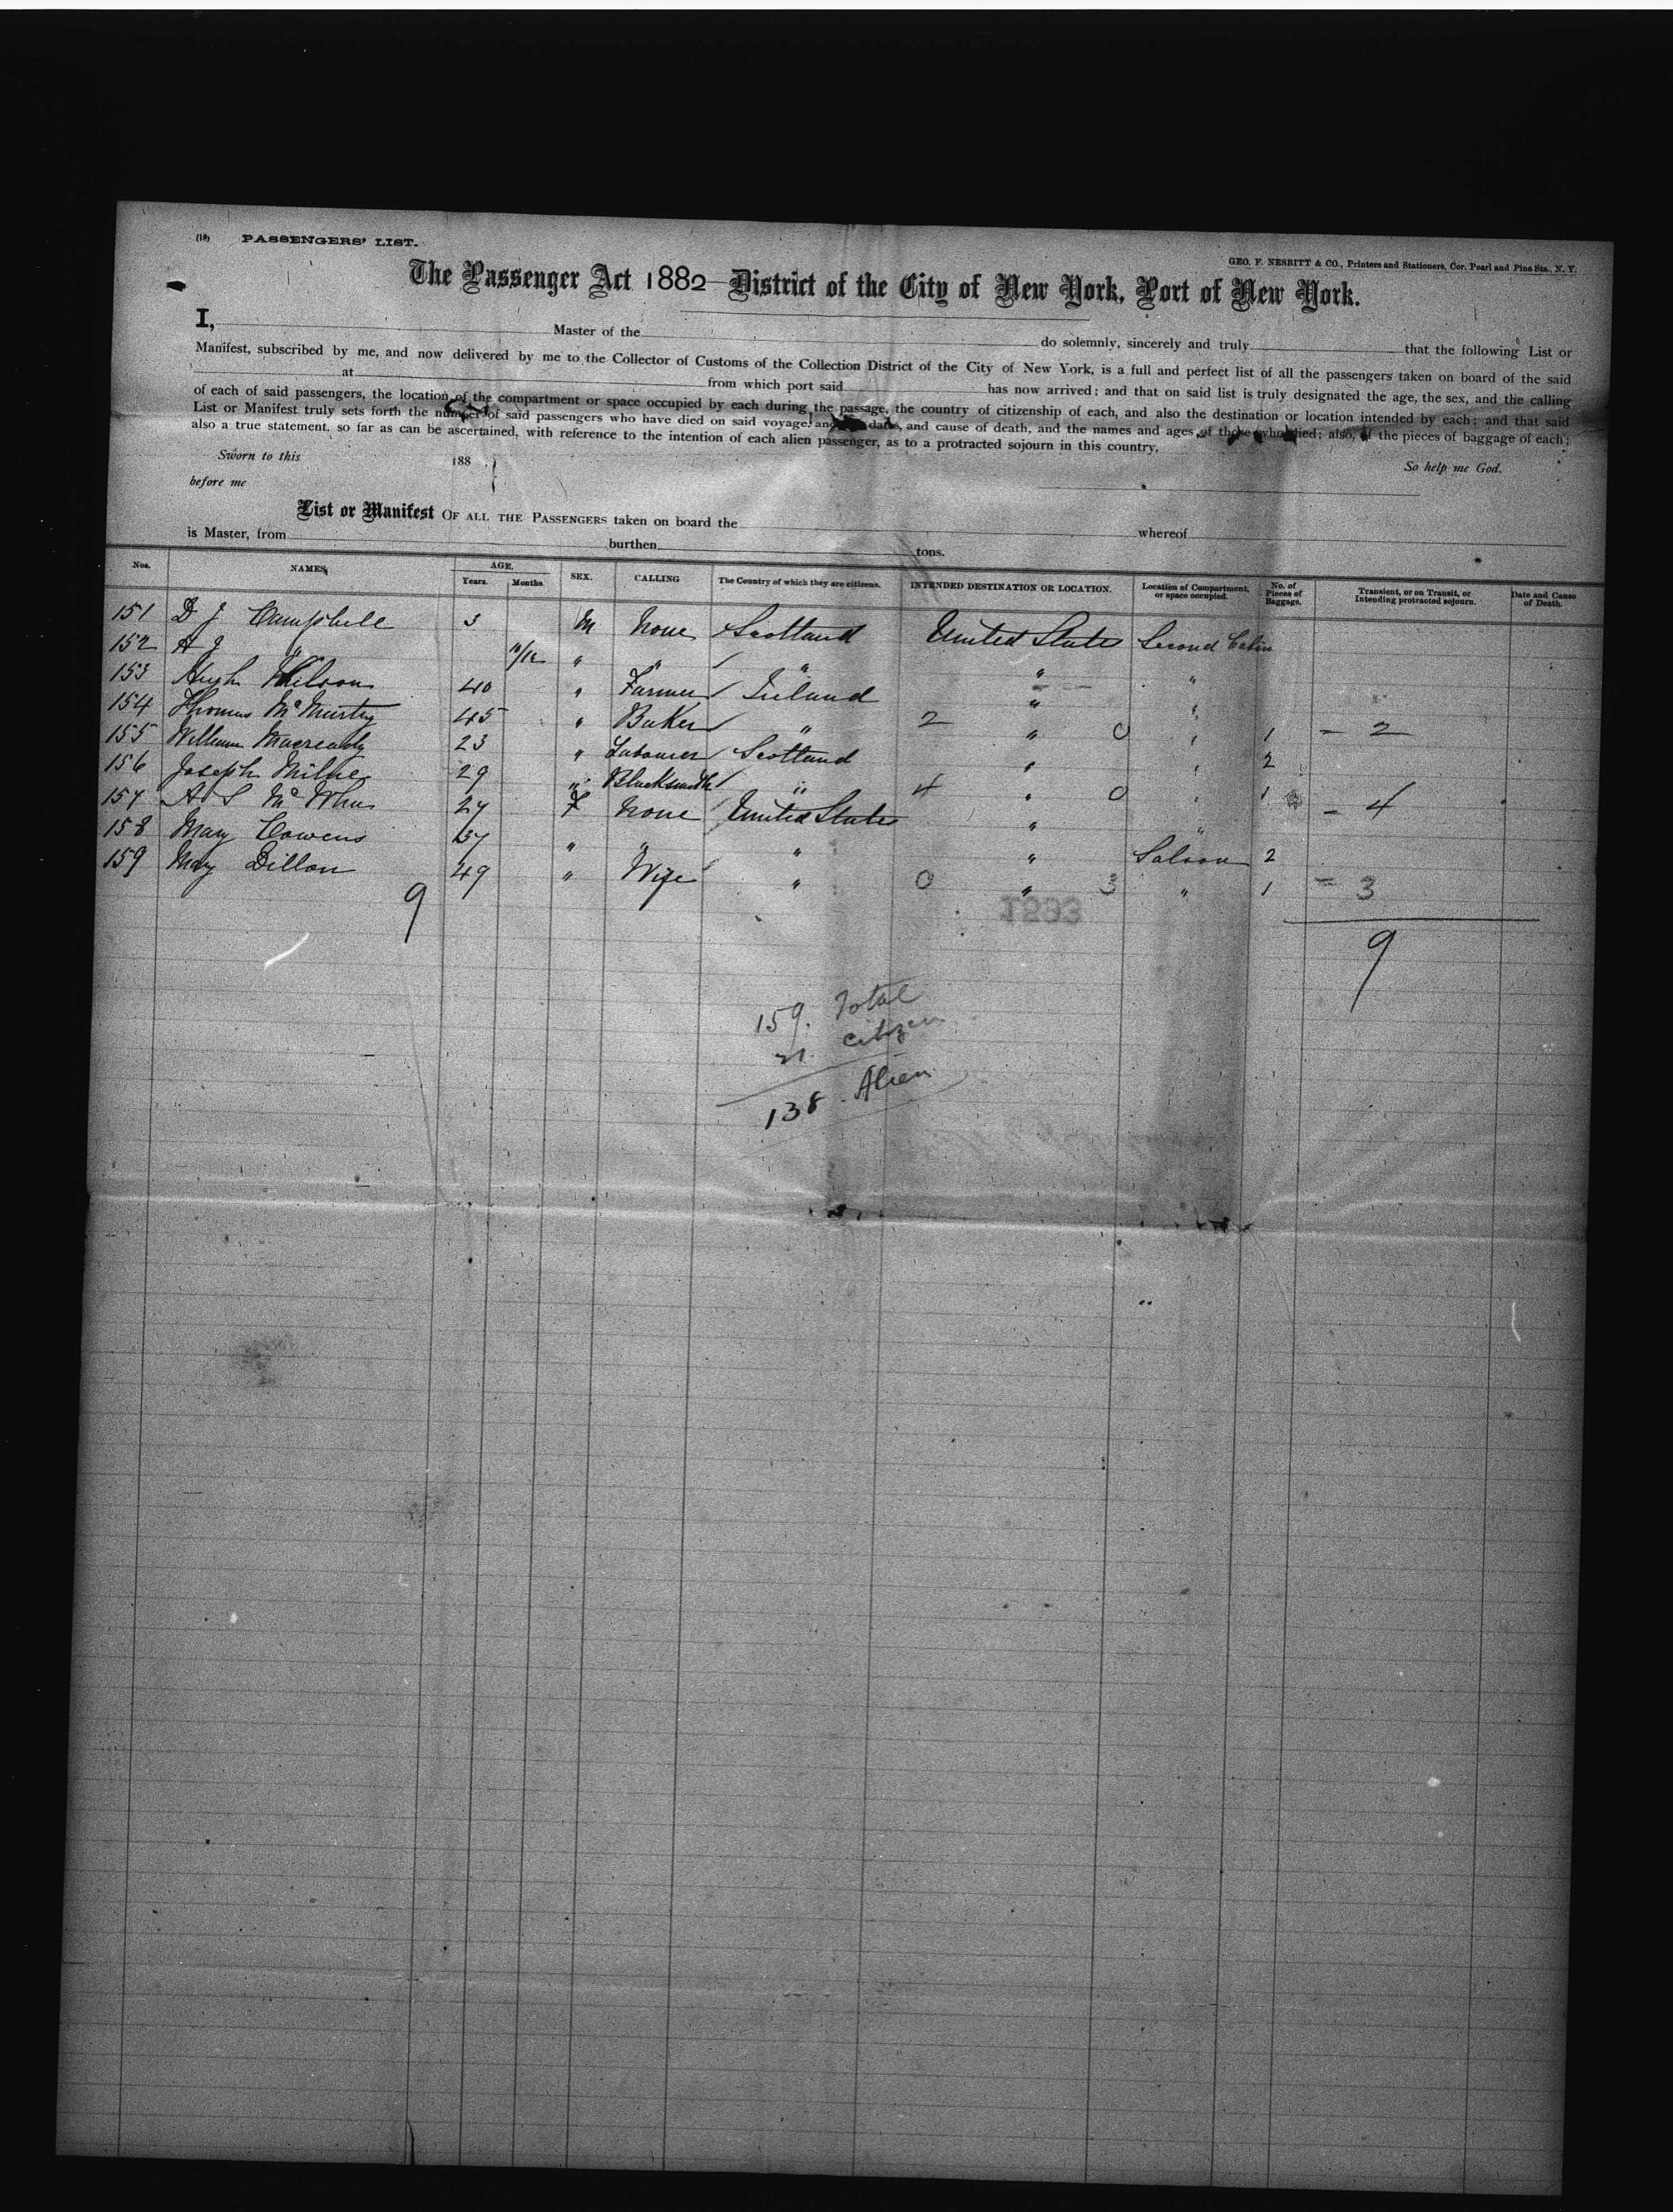 (18) PASSENGERS' LIST.
GEO. F. NESBITT & CO., Printers and Stationers, Cor. Pearl and Pine Sts., N. Y.
The Passenger Act 1882 District of the City of New York, Port of New York.
I, Master of the do solemnly, sincerely and truly that the following List or
Manifest, subscribed by me, and now delivered by me to the Collector of Customs of the Collection District of the City of New York, is a full and perfect list of all the passengers taken on board of the said
at from which port said has now arrived; and that on said list is truly designated the age, the sex, and the calling
of each of said passengers, the location of the compartment or space occupied by each during the passage, the country of citizenship of each, and also the destination or location intended by each; and that said
List or Manifest truly sets forth the number of said passengers who have died on said voyage, and dates, and cause of death, and the names and ages of those who died; also, of the pieces of baggage of each;
also a true statement, so far as can be ascertained, with reference to the intention of each alien passenger, as to a protracted sojourn in this country.
Sworn to this 188 So help me God.
before me
List or Manifest OF ALL THE PASSENGERS taken on board the whereof
is Master, from burthen tons.
Nos. NAMES AGE. Years. Months. SEX. CALLING The Country of which they are citizens. INTENDED DESTINATION OR LOCATION. Location of Compartment, or space occupied. No. of Pieces of Baggage. Transient, or on Transit, or Intending protracted sojourn. Date and Cause of Death.
151 D J Campbell 3 M None Scotland United States Second Cabin
152 A J " 10/12 " " " " "
153 Hugh Wilson 40 " Farmer Ireland " "
154 Thomas McMurtry 45 " Baker " 2 " 0 " 1 - 2
155 William Macready 23 " Labourer Scotland " " 2
156 Joseph Milne 29 " Blacksmith " 4 " 0 " 1 - 4
157 A S 27 F None United States " "
158 May Cowens 37 " " " " Saloon 2
159 May Dillon 49 " Wife " 0 " 3 " 1 - 3
9
1893
9
159. Total
21. citizen
138 - Alien